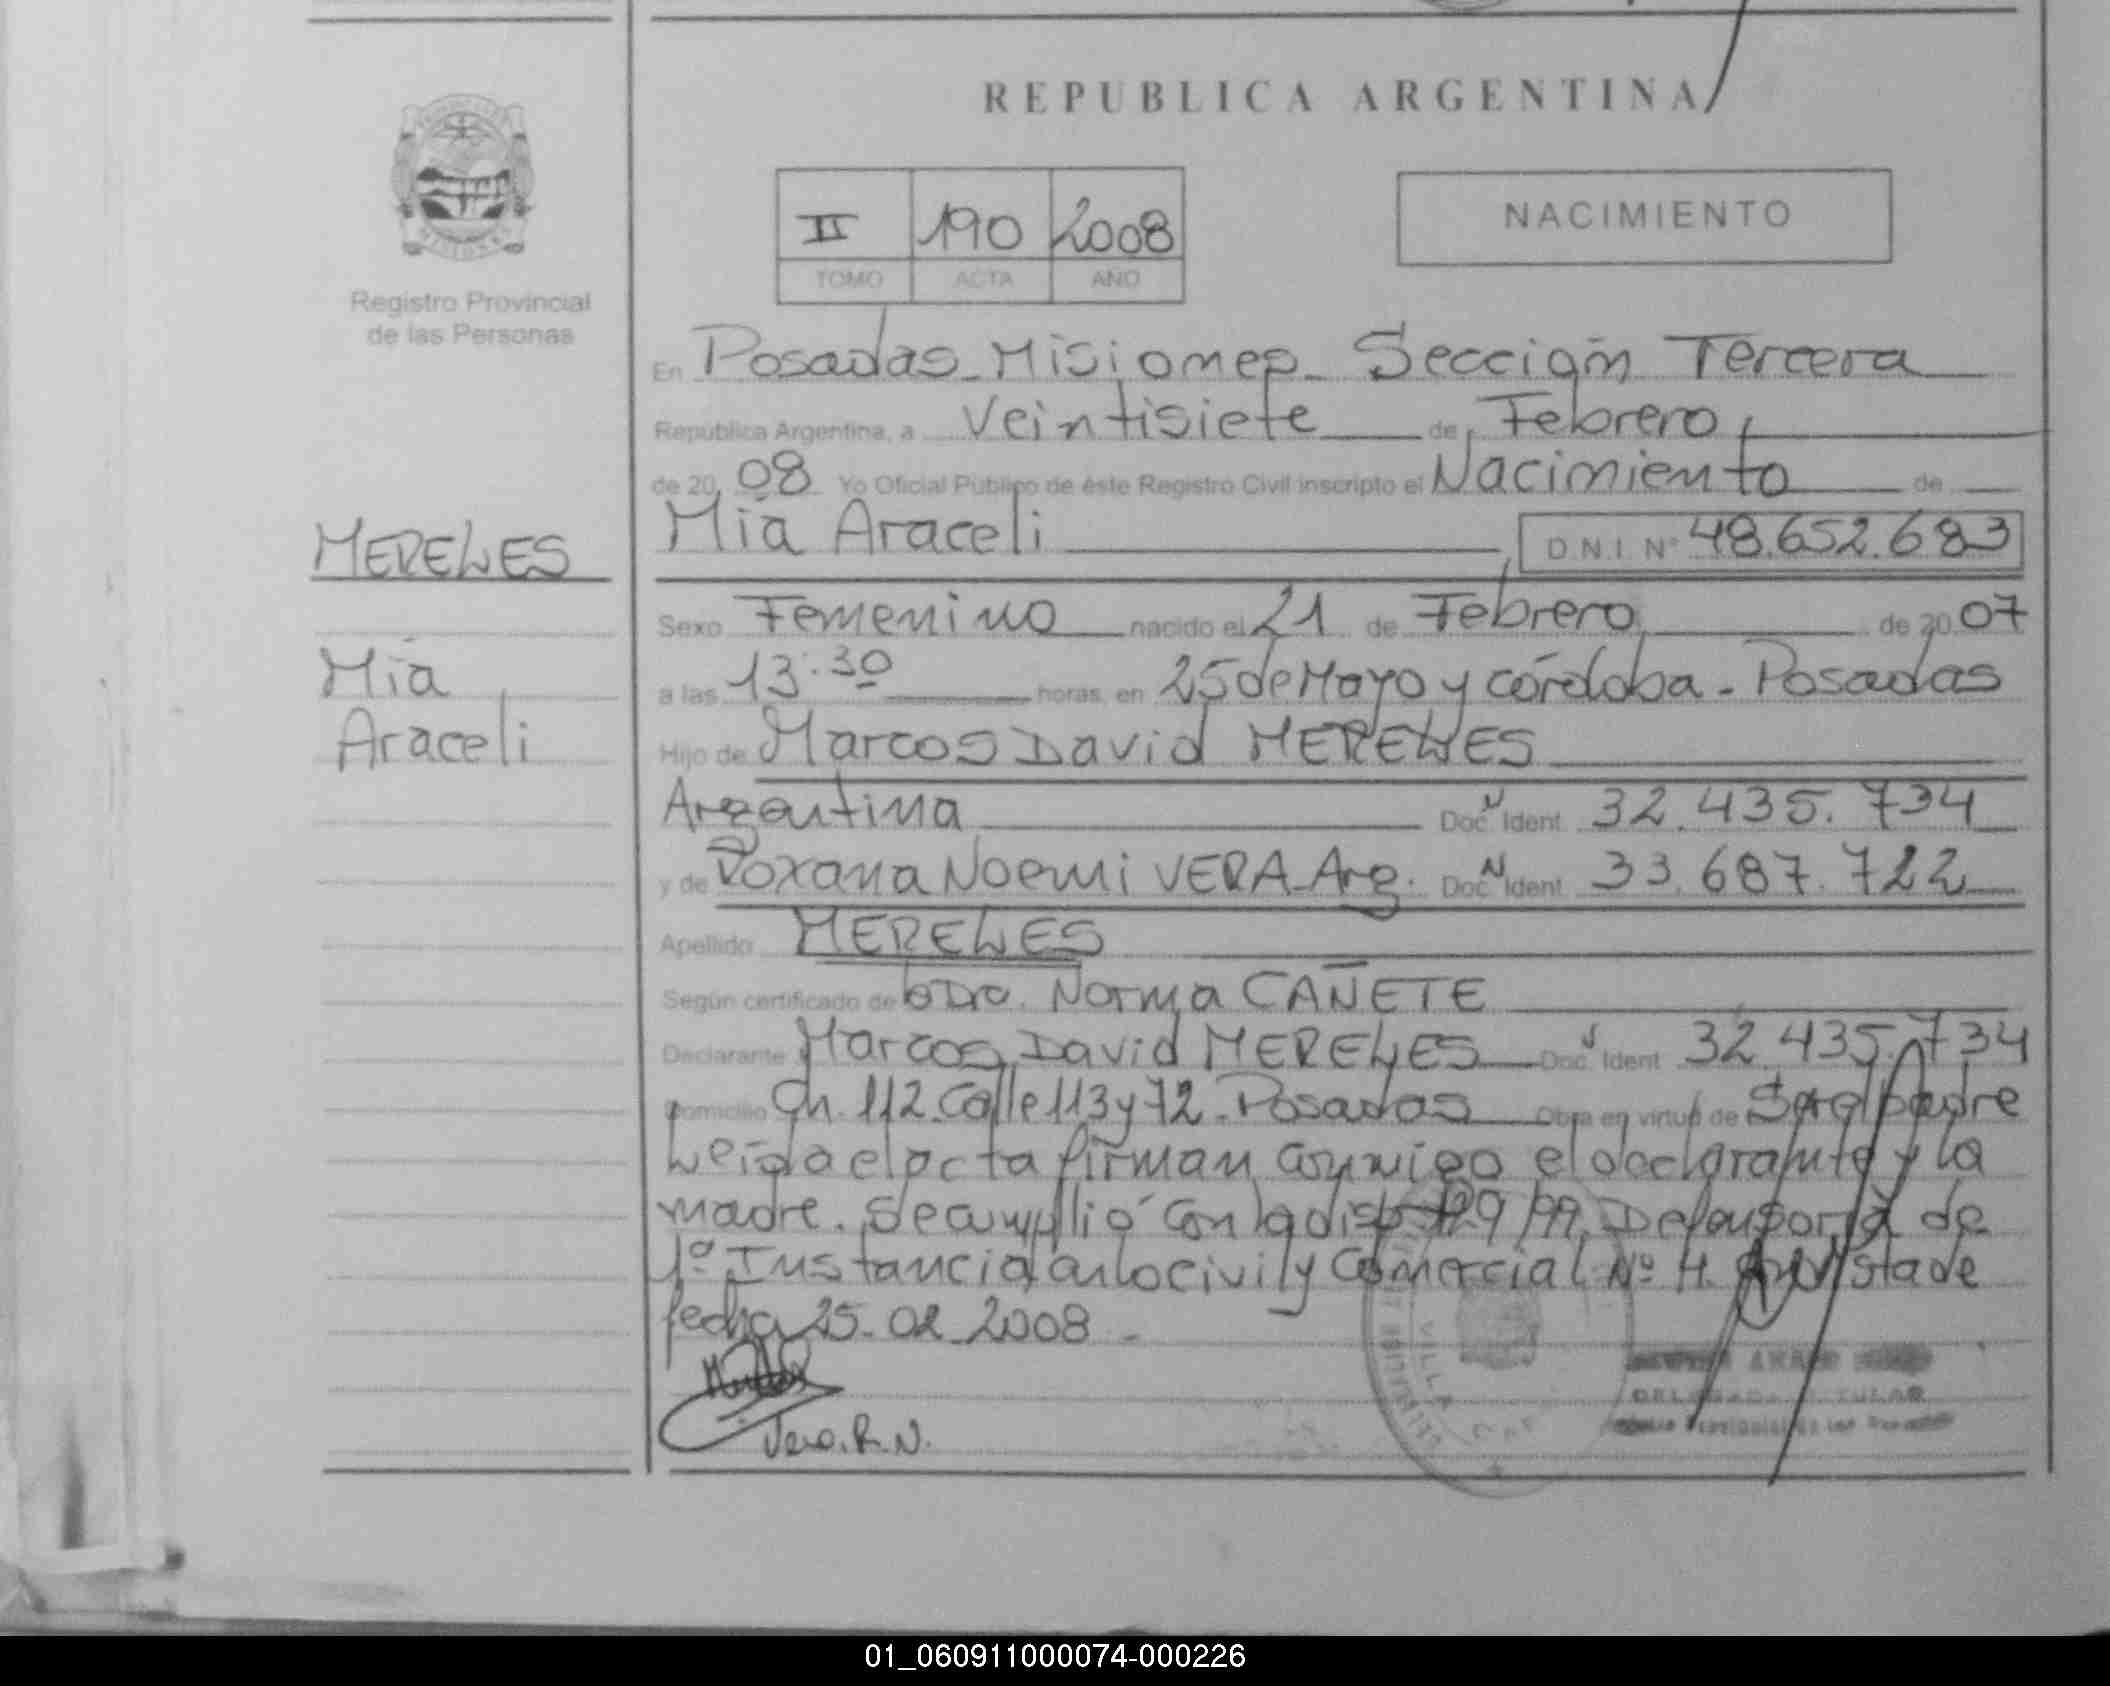 REPUBLICA ARGENTINA
II 190 2008
TOMO ACTA AÑO
NACIMIENTO
Registro Provincial
de las Personas
En Posadas - Misiones - Sección Tercera
República Argentina, a Veintisiete de Febrero
de 20 08 Yo Oficial Público de éste Registro Civil inscripto el Nacimiento de
MERELES
Mía Araceli D.N.I. Nº 48.652.683
Sexo Femenino nacido el 21 de Febrero de 20 07
Mía
a las 13:30 horas, en 25 de Mayo y córdoba - Posadas
Araceli
Hijo de Marcos David MERELES
Argentina Doc. N Ident. 32.435.734
y de Roxana Noemi VERA - Arg. Doc. N Ident. 33.687.722
Apellido MERELES
Según certificado de Dra. Norma CAÑETE
Declarante Marcos David MERELES Doc. N Ident. 32.435.734
Domicilio Ch. 112 - Calle 113 y 72 - Posadas Obra en virtud de Ser el padre
Leída el acta firman conmigo el declarante y la
madre. Se cumplió con la disp. 129/99. Defensoria de
1º Instancia en lo civil y Comercial Nº 4. de
fecha 25-02-2008 -
Vera. R. N.
VILLA
01_060911000074-000226